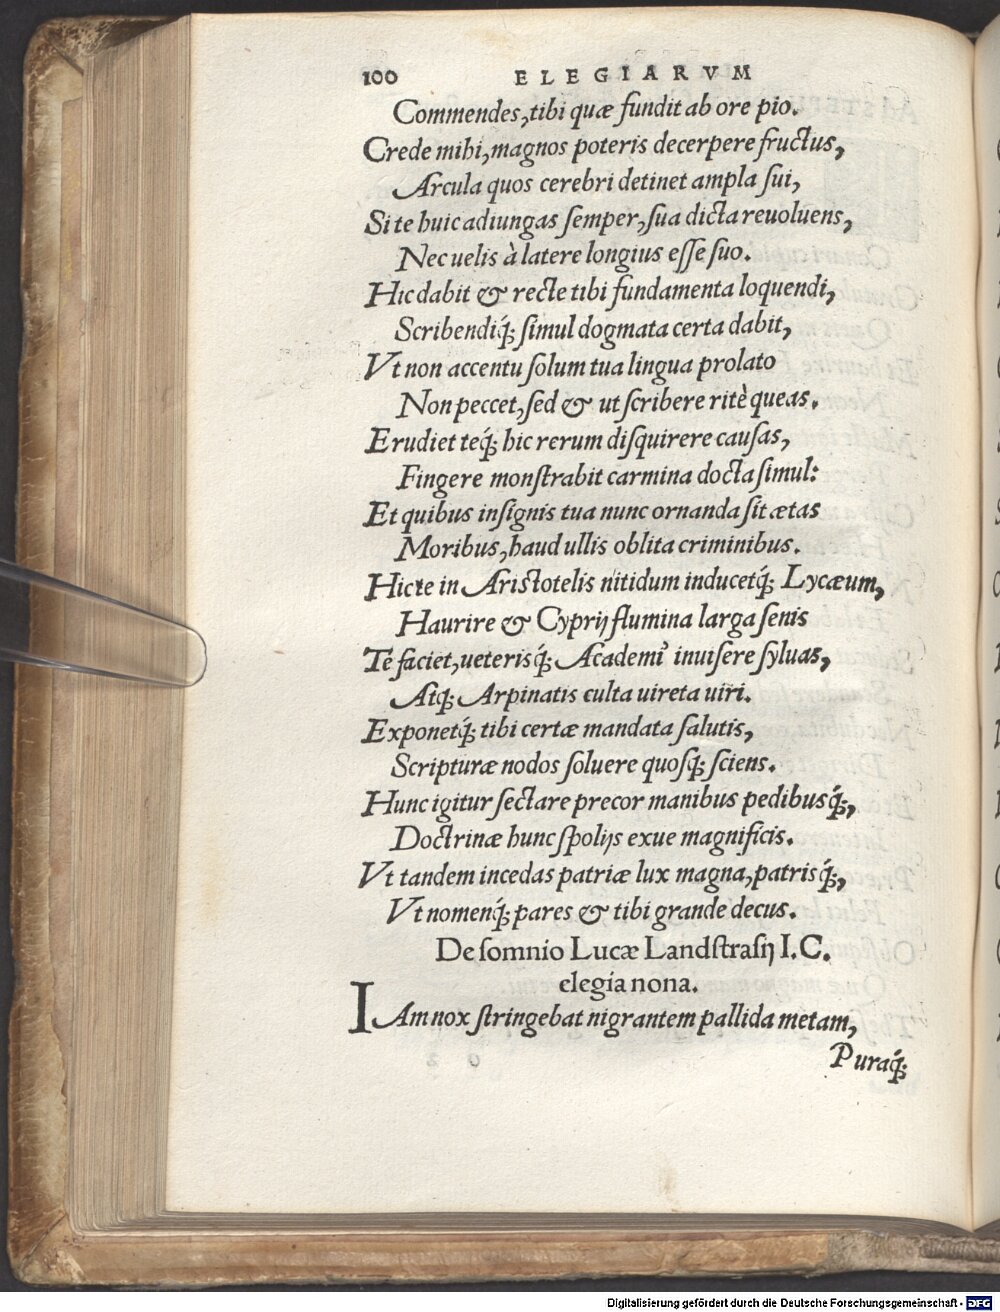 100 ELEGIARVM
Commendes, tibi quæ fundit ab ore pio.
Crede mihi, magnos poteris decerpere fructus,
Arcula quos cerebri detinet ampla sui,
Si te huic adiungas semper, sua dicta reuoluens,
Nec uelis à latere longius esse suo.
Hic dabit & recte tibi fundamenta loquendi,
Scribendiq́; simul dogmata certa dabit,
Vt non accentu solum tua lingua prolato
Non peccet, sed & ut scribere ritè queas.
Erudiet teq́; hic rerum disquirere causas,
Fingere monstrabit carmina docta simul:
Et quibus insignis tua nunc ornanda sit ætas
Moribus, haud ullis oblita criminibus.
Hic te in Aristotelis nitidum inducetq́; Lycæum,
Haurire & Cyprij flumina larga senis
Te faciet, ueterisq́; Academi inuisere syluas,
Atq; Arpinatis culta uireta uiri.
Exponetq́; tibi certæ mandata salutis,
Scripturæ nodos soluere quosq́; sciens.
Hunc igitur sectare precor manibus pedibusq́;,
Doctrinæ hunc spolijs exue magnificis.
Vt tandem incedas patriæ lux magna, patrisq́;,
Vt nomenq́; pares & tibi grande decus.
De somnio Lucæ Landstrasij I.C.
elegia nona.
IAm nox stringebat nigrantem pallida metam,
Puraq́;
Digitalisierung gefördert durch die Deutsche Forschungsgemeinschaft - DFG